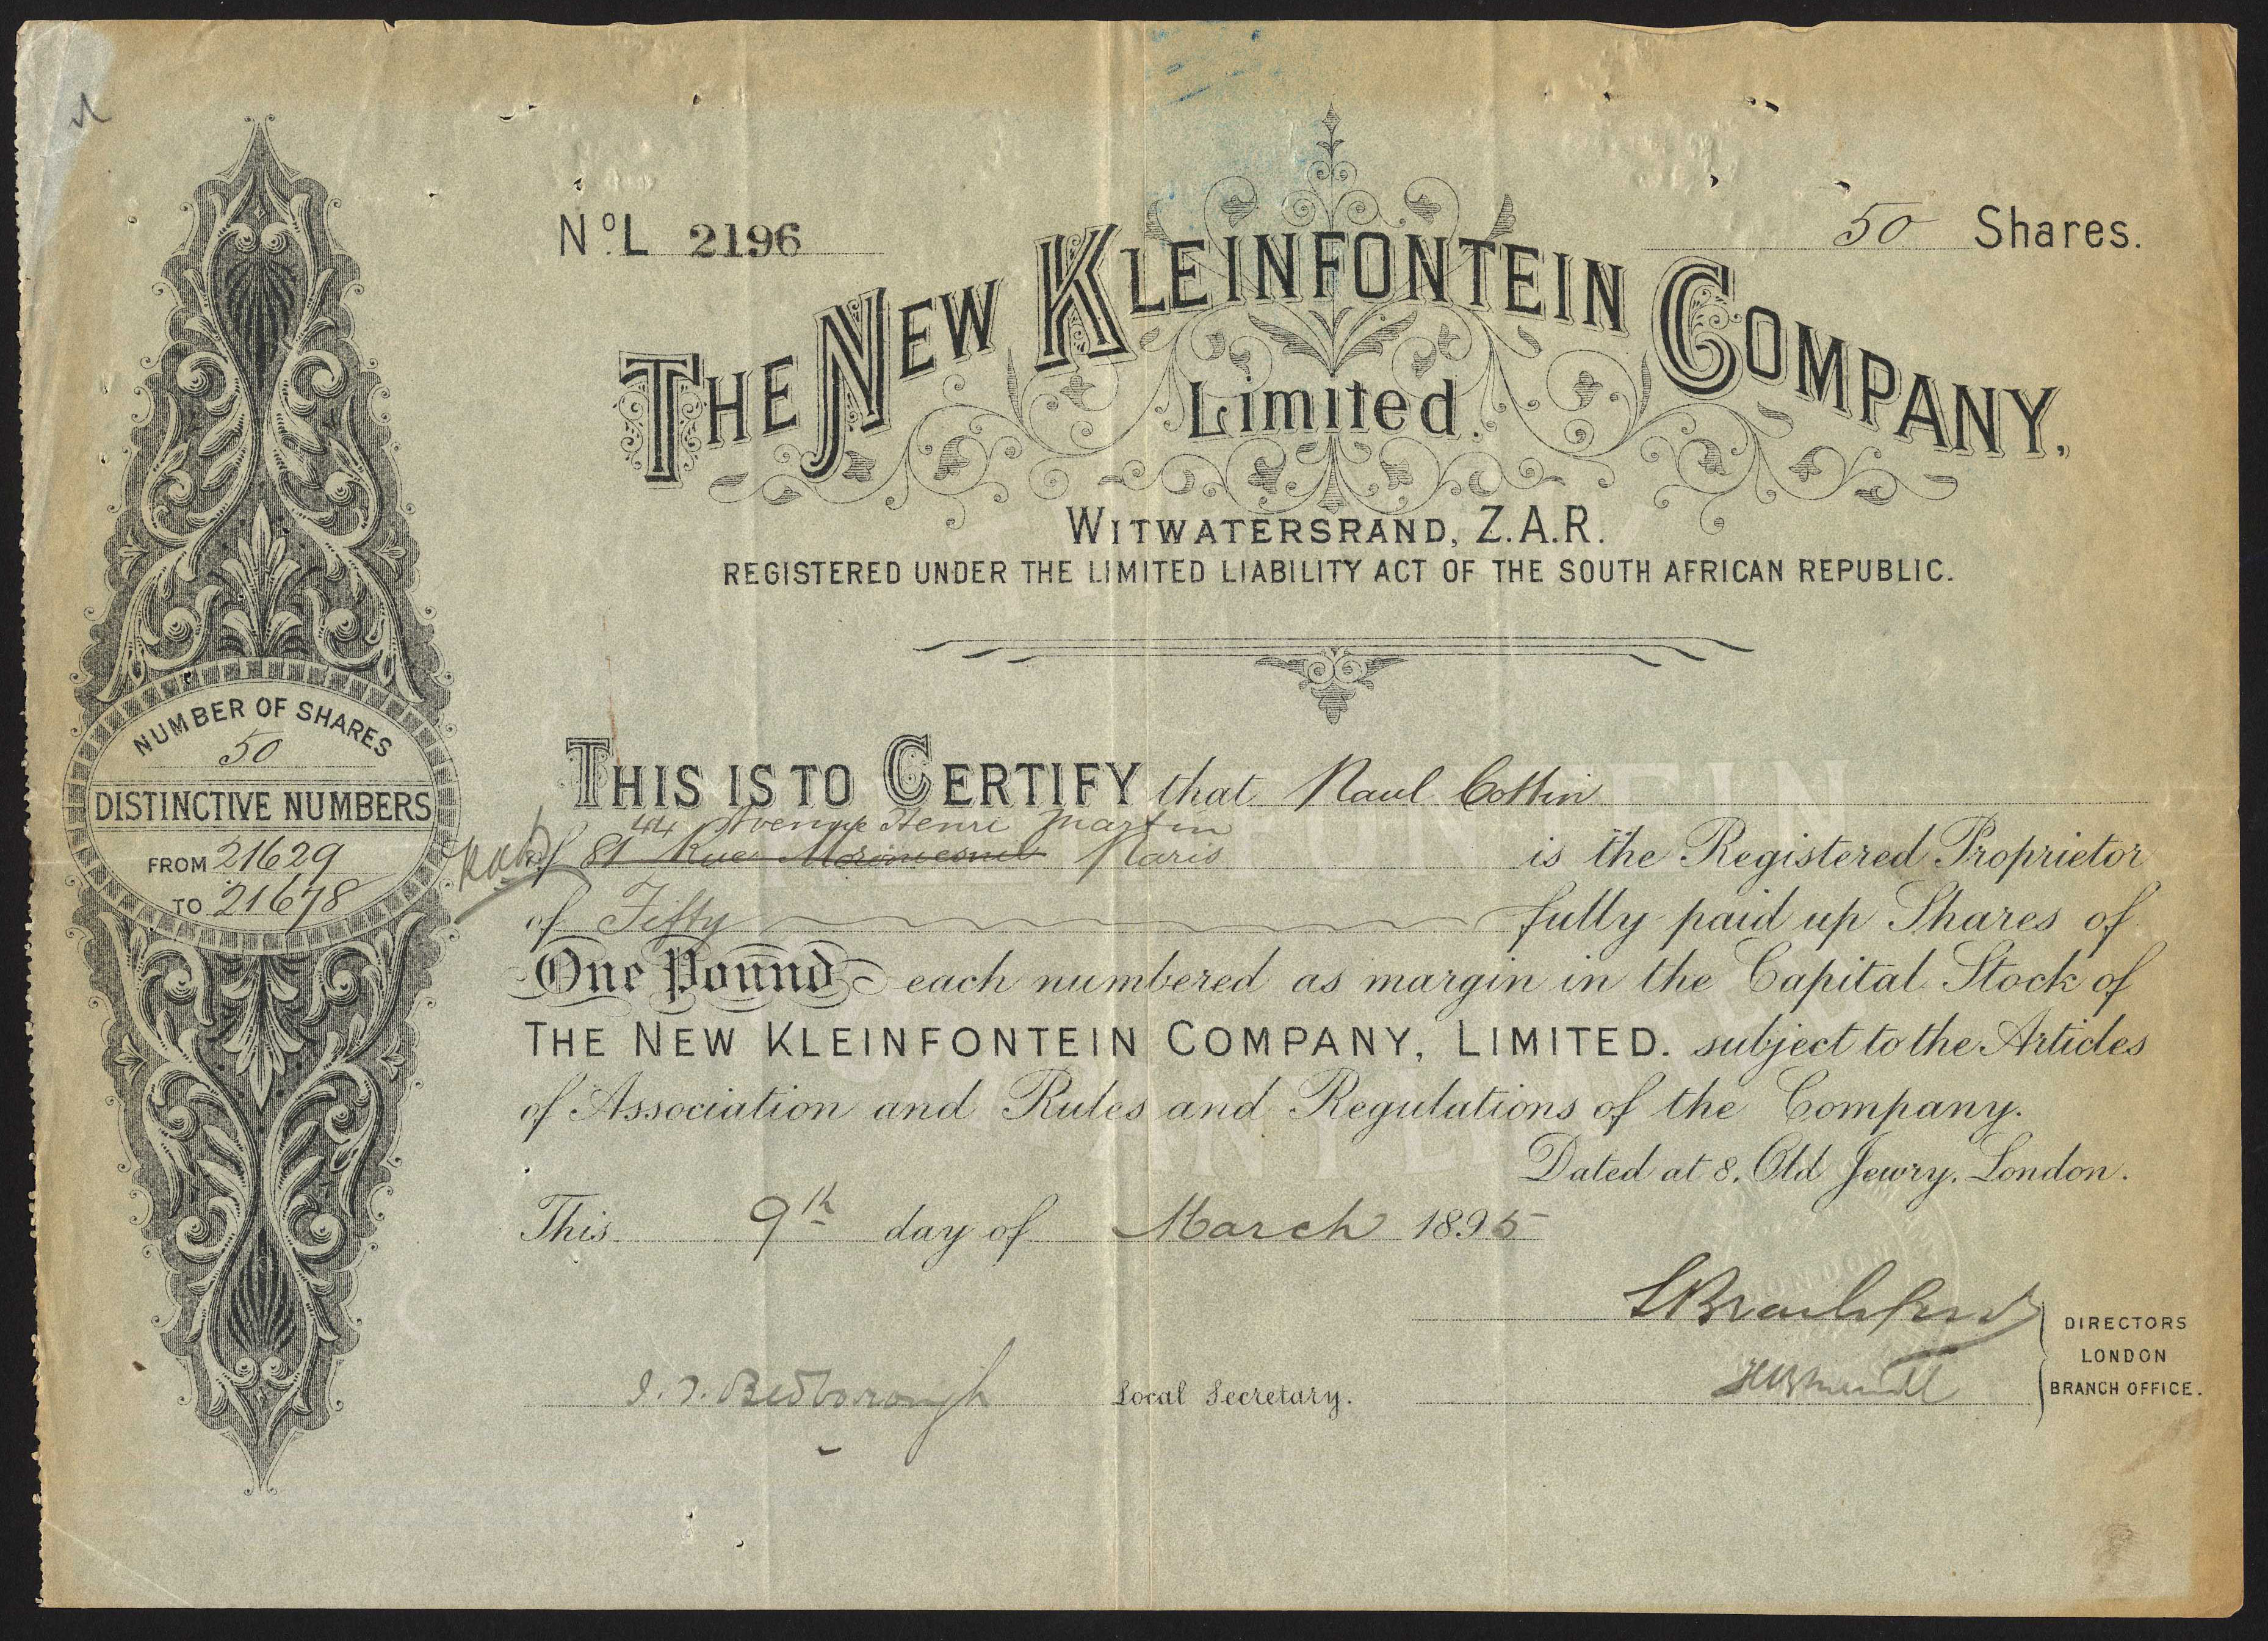 No. L 2196
50 Shares.
THE NEW KLEINFONTEIN COMPANY,
Limited.
WITWATERSRAND, Z.A.R.
REGISTERED UNDER THE LIMITED LIABILITY ACT OF THE SOUTH AFRICAN REPUBLIC.
NUMBER OF SHARES
50
DISTINCTIVE NUMBERS
FROM 21629
TO 21678
THIS IS TO CERTIFY that Paul Cottin
44 Avenue Henri Martin
of 81 Rue Paris is the Registered Proprietor
of Fifty fully paid up Shares of
One Pound each numbered as margin in the Capital Stock of
THE NEW KLEINFONTEIN COMPANY, LIMITED. subject to the Articles
of Association and Rules and Regulations of the Company.
Dated at 8, Old Jewry, London.
This 9th day of March 1895
DIRECTORS
LONDON
BRANCH OFFICE.
Bedborough Local Secretary.